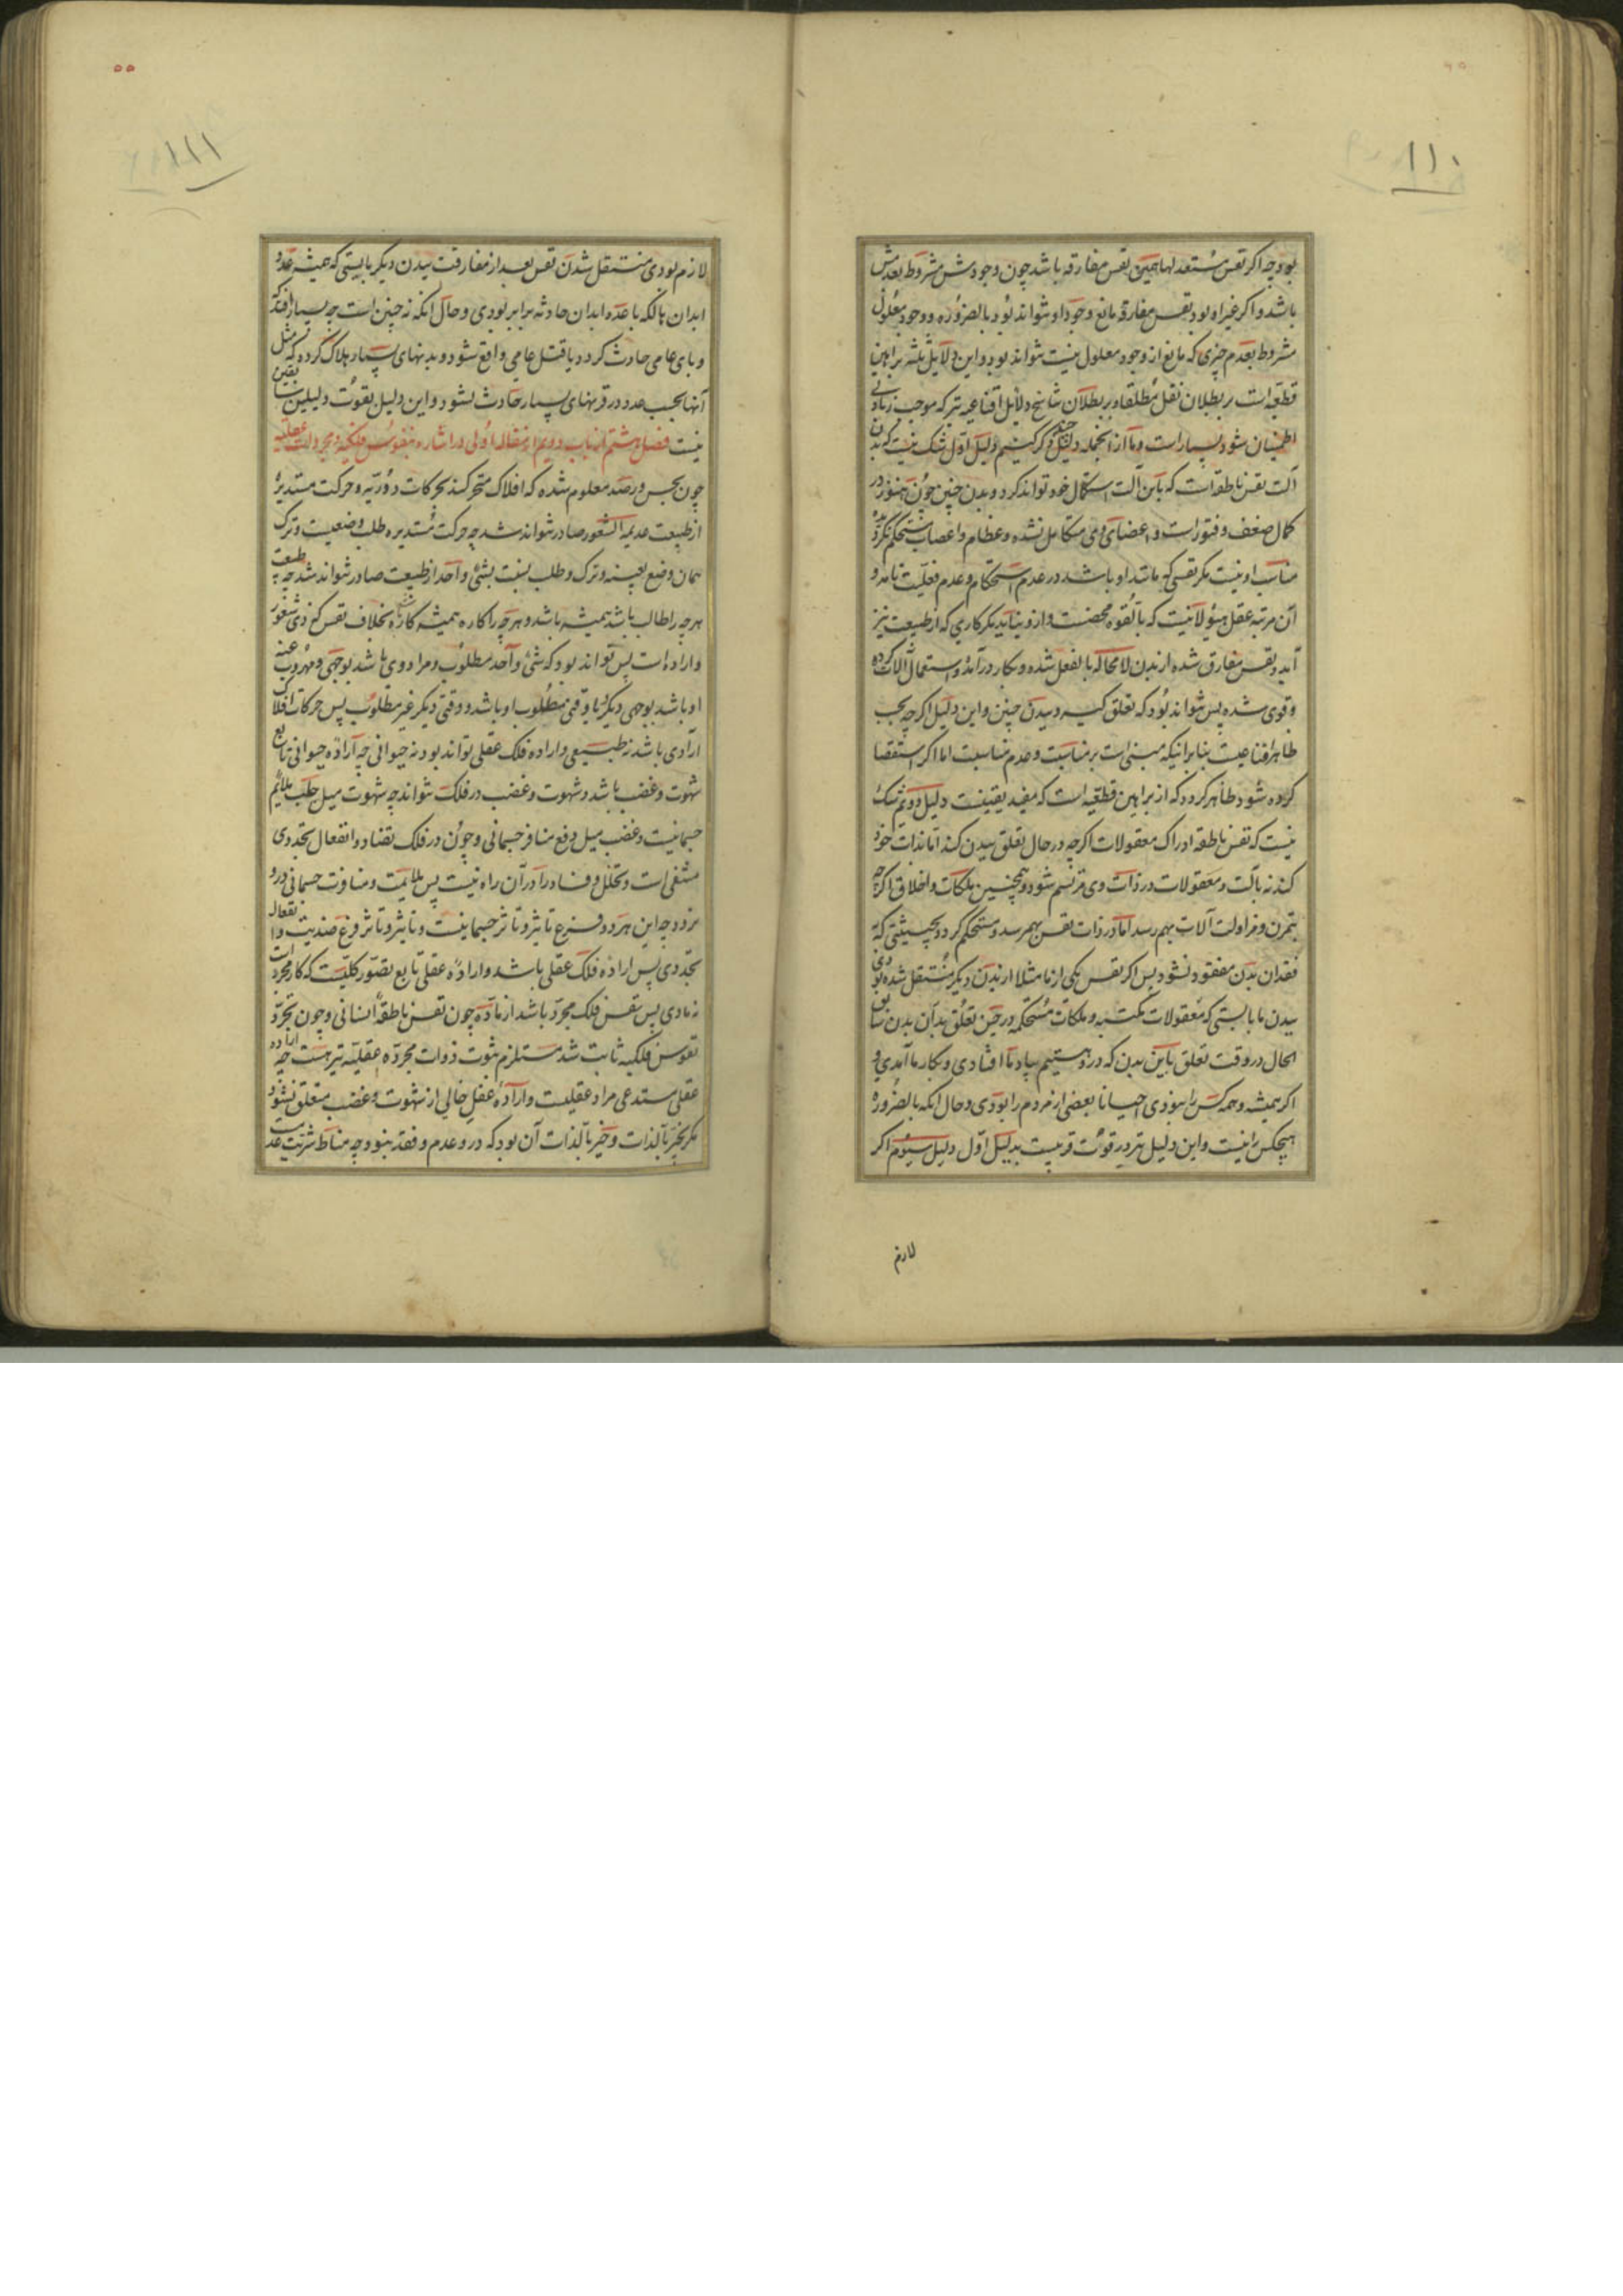 ۱۱۰
بود چه اگر نفس مستعد لها همین نفس مفارقه باشد چون وجودش مشروط بعدمش
باشد و اگر غیر او بود نفس مفارقه مانع وجود او نتواند بود بالضروره و وجود معلول
مشروط بعدم چیزی که مانع از وجود معلول نیست نتواند بود و این دلایل ثلثه براهین
قطعیه است بر بطلان نقل مطلقا و بر بطلان تناسخ دلائل اقناعیه نیز که موجب زیادتی
اطمینان شود بسیار است و ما از آنجمله دلیلی چند ذکر کنیم دلیل اول شک نیست که بدن
آلت نفس ناطقه است که باین آلت استکمال خود تواند کرد و بدن جنین چون هنوز در
کمال ضعف و فتور است و اعضای وی متکامل نشده و عظام و اعصاب مستحکم نگردیده
مناسب او نیست مگر نفسی که مانند او باشد در عدم استحکام و عدم فعلیت تامه و
آن مرتبه عقل هیولانیست که بالقوه محضست و ازو نیاید مگر کاری که از طبیعت نیز
آید و نفس مفارق شده از بدن لامحاله بالفعل شده و بکار درآمده و استعمال آلات کرده
و قوی شده پس نتواند بود که تعلق گیرد ببدن جنین و این دلیل اگرچه بحسب
ظاهر اقناعیست بنا بر اینکه مبنی است بر مناسبت و عدم مناسبت اما اگر استقصا
کرده شود ظاهر گردد که از براهین قطعیه است که مفید یقینست دلیل دویم شک
نیست که نفس ناطقه ادراک معقولات اگرچه در حال تعلق ببدن کند اما بذات خود
کند نه بآلت و معقولات در ذات وی مرتسم شود و همچنین ملکات و اخلاق اگرچه
بتمرن و مزاولت آلات بهم رسد اما در ذات نفس بهم رسد و مستحکم گردد بحیثیتی که
فقدان بدن مفقود نشود پس اگر نفس یکی از ما مثلا از بدن دیگر منتقل شده بودی
ببدن ما بایستی که معقولات مکتسبه و ملکات مستحکمه در حین تعلق بدان بدن سابق
الحال در وقت تعلق باین بدن که درو هستیم بیاد ما افتادی و بکار ما آمدی و
اگر همیشه و همه کس را نبودی احیانا بعضی از مردم را بودی و حال آنکه بالضروره
هیچکس را نیست و این دلیل نیز در قوت قریبست بدلیل اول دلیل سیوم اگر
لازم
۵۵
۱۱۱
لازم بودی منتقل شدن نفس بعد از مفارقت ببدن دیگر بایستی که همیشه عدد
ابدان هالکه با عدد ابدان حادثه برابر بودی و حال آنکه نه چنین است چه بسیار افتد که
وبای عامی حادث گردد یا قتل عامی واقع شود و بدنهای بسیار هلاک گردد که مثل
آنها بحسب عدد در قرنهای بسیار حادث نشود و این دلیل بقوت دلیلین سابقین
نیست فصل هشتم از باب دویم از مقاله اولی در اشاره بنفوس فلکیه و مجردات عقلیه
چون بحس و رصد معلوم شده که افلاک متحرکند بحرکات دوریه و حرکت مستدیره
از طبیعت عدیم الشعور صادر نتواند شد چه حرکت مستدیره طلب وضعیست و ترک
همان وضع بعینه و ترک و طلب بنسبت بشئ واحد از طبیعت صادر نتواند شد چه طبیعت
هرچه را طالب باشد همیشه باشد و هرچه را کاره همیشه کاره باشد بخلاف نفس که ذی شعور
و اراده است پس تواند بود که شئ واحد مطلوب و مراد وی باشد بوجهی و مهروب عنه
او باشد بوجهی دیگر یا وقتی مطلوب او باشد و وقتی دیگر غیر مطلوب پس حرکات افلاک
ارادی باشد نه طبیعی و اراده فلک عقلی تواند بود نه حیوانی چه اراده حیوانی تابع
شهوت و غضب باشد و شهوت و غضب در فلک نتواند چه شهوت میل جلب ملایم
جسمانیست و غضب میل دفع منافر جسمانی و چون در فلک تضاد و انفعال تجددی
منتفی است و تحلل و فساد را در آن راه نیست پس ملایمت و منافرت جسمانی درو
نرود چه این هر دو فرع تاثیر و تاثر جسمانیست و تاثیر و تاثر فرع ضدیت و انفعال
تجددی پس اراده فلک عقلی باشد و اراده عقلی تابع تصور کلیست که کار مجرد است
نه مادی پس نفس فلک مجرد باشد از ماده چون نفس ناطقه انسانی و چون تجرد
نفوس فلکیه ثابت شد مستلزم ثبوت ذوات مجرده عقلیه نیز هست چه اراده
عقلی مستدعی مراد عقلیست و اراده عقل خالی از شهوت و غضب متعلق نشود
مگر بخیر بالذات و خیر بالذات آن بود که درو عدم و فقد نبود چه مناط شریت عدمیست